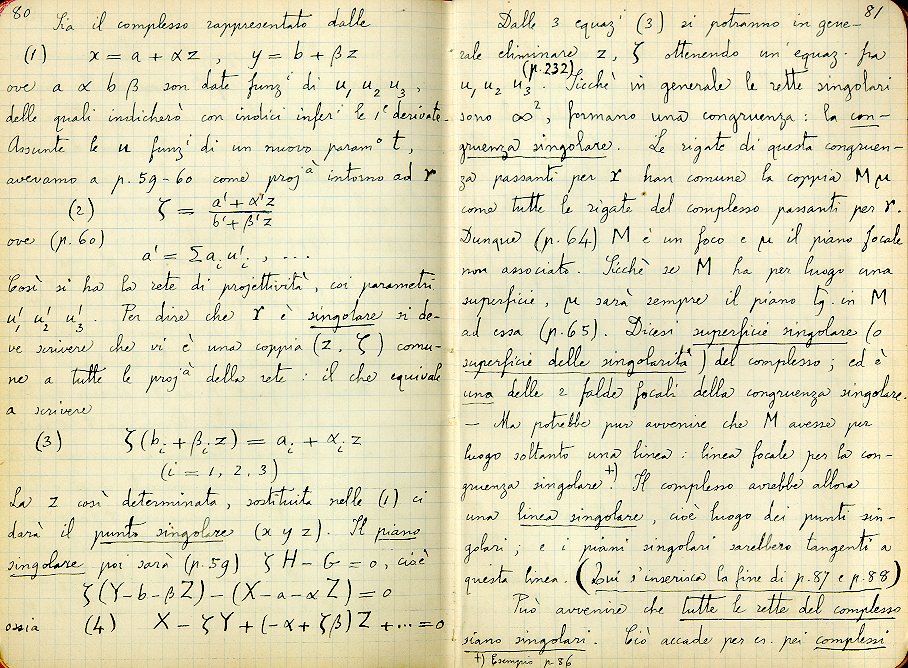 80
Sia il complesso rappresentato dalle
(1) x = a + αz , y = b + βz
ove a α b β son date funzⁱ di u₁ u₂ u₃ ,
delle quali indicherò con indici inferⁱ le 1ᵉ derivate.
Assunte le u funzⁱ di un nuovo paramᵒ t,
avevamo a p. 59-60 come projᵃ intorno ad r
(2) ζ = (a' + α'z) / (b' + β'z)
ove (p. 60)
a' = Σ aᵢ u'ᵢ , ...
Così si ha la rete di projettività, coi parametri
u'₁ u'₂ u'₃ . Per dire che r è singolare si de-
ve scrivere che vi è una coppia (z, ζ) comu-
ne a tutte le projᵃ della rete : il che equivale
a scrivere
(3) ζ(bᵢ + βᵢ z) = aᵢ + αᵢ z
(i = 1, 2, 3)
La z così determinata, sostituita nelle (1) ci
darà il punto singolare (x y z). Il piano
singolare poi sarà (p. 59) ζH - G = 0, cioè
ζ(Y - b - βZ) - (X - a - αZ) = 0
ossia (4) X - ζY + (-α + ζβ)Z + ... = 0
81
Dalle 3 equazⁱ (3) si potranno in gene-
rale eliminare z, ζ ottenendo un'equaz. fra
u₁ u₂ u₃ (p. 232). Sicchè in generale le rette singolari
sono ∞², formano una congruenza : la con-
gruenza singolare. Le rigate di questa congruen-
za passanti per r han comune la coppia M μ
come tutte le rigate del complesso passanti per r.
Dunque (p. 64) M è un foco e μ il piano focale
non associato. Sicchè se M ha per luogo una
superficie, μ sarà sempre il piano tg. in M
ad essa (p. 65). Dicesi superficie singolare (o
superficie delle singolarità) del complesso ; ed è
una delle 2 falde focali della congruenza singolare.
— Ma potrebbe pur avvenire che M avesse per
luogo soltanto una linea : linea focale per la con-
gruenza singolare ⁺⁾. Il complesso avrebbe allora
una linea singolare, cioè luogo dei punti sin-
golari ; e i piani singolari sarebbero tangenti a
questa linea. (Qui s'inserisca la fine di p. 87 e p. 88)
Può avvenire che tutte le rette del complesso
siano singolari. Ciò accade per es. pei complessi
+) Esempio p. 86